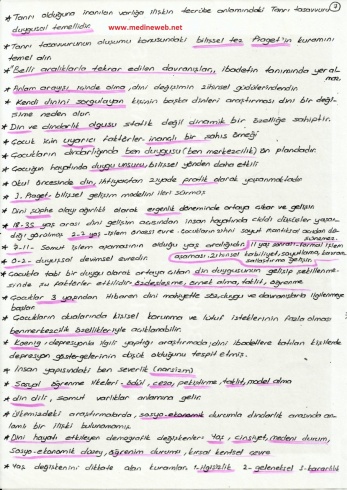 2
* Tanrı olduğuna inanılan varlığa ilişkin tecrübe anlamındaki Tanrı tasavvuru
duygusal temellidir.
www.medineweb.net
* Tanrı tasavvurunun oluşumu konusundaki bilişsel tez Piaget'in kuramını
temel alır.
* "Belli aralıklarla tekrar edilen davranışlar", ibadetin tanımında yer al-
maz
* Anlam arayışı içinde olma, dini değişimin zihinsel güdülerindendir.
* Kendi dinini sorgulayan kişinin başka dinleri araştırması dini bir deği-
şime neden olur.
* Din ve dindarlık olgusu statik değil dinamik bir özelliğe sahiptir.
* Çocuk için uyarıcı faktörler: inançlı bir şahıs örneği
* Çocukların dindarlığında ben duygusu (ben merkezcilik) ön plandadır.
* Çocuğun hayatında duygu unsuru, bilişsel yönden daha etkili
* Okul öncesinde din, ihtiyaçtan ziyade pratik olarak yaşanmaktadır
* J. Piaget- bilişsel gelişim modelini ileri sürmüş
* Dini şüphe olayı ağırlıklı olarak ergenlik döneminde ortaya çıkar ve gelişir
* 18-35 yaş arası dini gelişim açısından insan hayatında ciddi düşüşler yaşan-
dığı görülmüş. 2-7 yaş- işlem öncesi evre. Çocukların zihni soyut mantıksal açıdan da
düşünemez.
* 7-11- Somut işlem aşamasının olduğu yaş aralığıdır. 11 yaş sonrası-formal işlem
aşaması. zihinsel kabiliyet, soyutlama, kavram-
* 0-2- duyuşsal devinsel evredir.
* Çocukta tabi bir duygu olarak ortaya çıkan din duygusunun gelişip şekillenme-
sinde şu faktörler etkilidir= özdeşleşme, örnek alma, taklit, öğrenme
* Çocuklar 3 yaşından itibaren dini mahiyette söz, duygu ve davranışlarla ilgilenmeye
başlar.
* Çocukların dualarında kişisel korunma ve lütuf isteklerinin fazla olması
benmerkezcilik özellikleriyle açıklanabilir.
* Koenig, depresyonla ilgili yaptığı araştırmada; dini ibadetlere katılan kişilerde
depresyon göstergelerinin düşük olduğunu tespit etmiş.
* İnsan yapısındaki ben severlik (narsizm)
* Sosyal öğrenme ilkeleri- ödül, ceza, pekiştirme, taklit, model alma
* din dili, somut varlıklar anlamına gelir.
* Ülkemizdeki araştırmalarda, sosyo-ekonomik durumla dindarlık arasında an-
lamlı bir ilişki bulunamamış.
* Dini hayatı etkileyen demografik değişkenler: yaş, cinsiyet, medeni durum,
sosyo-ekonomik düzey, öğrenim durumu, kırsal kentsel çevre
* Yaş değişkenini dikkate alan kuramlar: 1-ilgisizlik 2- geleneksel 3-kararlılık